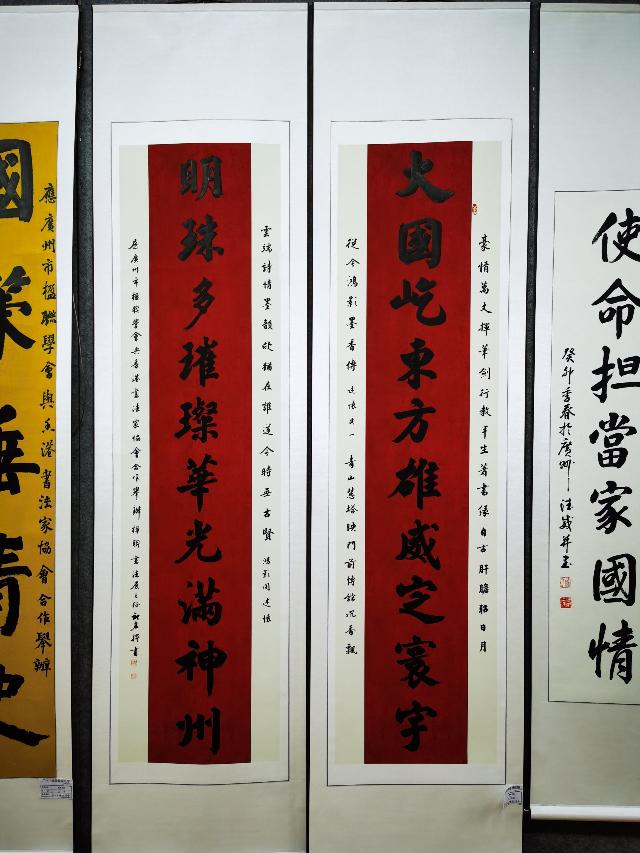 使命担當家國情
癸卯季春於廣州
豪情萬丈揮筆劍行教半生著書緣自古肝膽昭日月
火國屹東方雄威定寰宇
從今鴻影墨香傳 述懷其一 青山慧塔映門前博館沉香飄
雲端詩情墨韻歌猶在誰道今時無古賢 鴻影同述懷
明珠多璀璨華光滿神州
應廣州市楹聯學會與香港書法家協會合作舉辦楹聯書法展之徵
應廣州市楹聯學會與香港書法家協會合作舉辦
國策垂青史